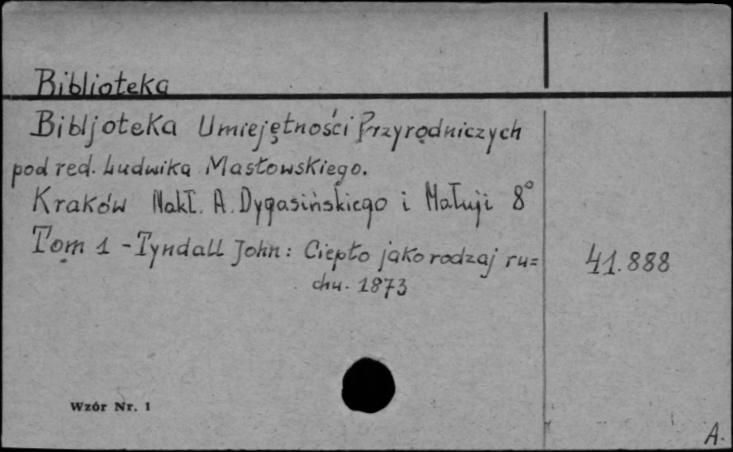 Biblioteka
Bibljoteka Umiejętności Przyrodniczych
pod red. Ludwika Masłowskiego.
Kraków Nakł. A. Dygasińskiego i Małuji 8°
Tom 1 - Tyndall John: Ciepło jako rodzaj ru=
chu. 1873
41.888
Wzór Nr. 1
A.